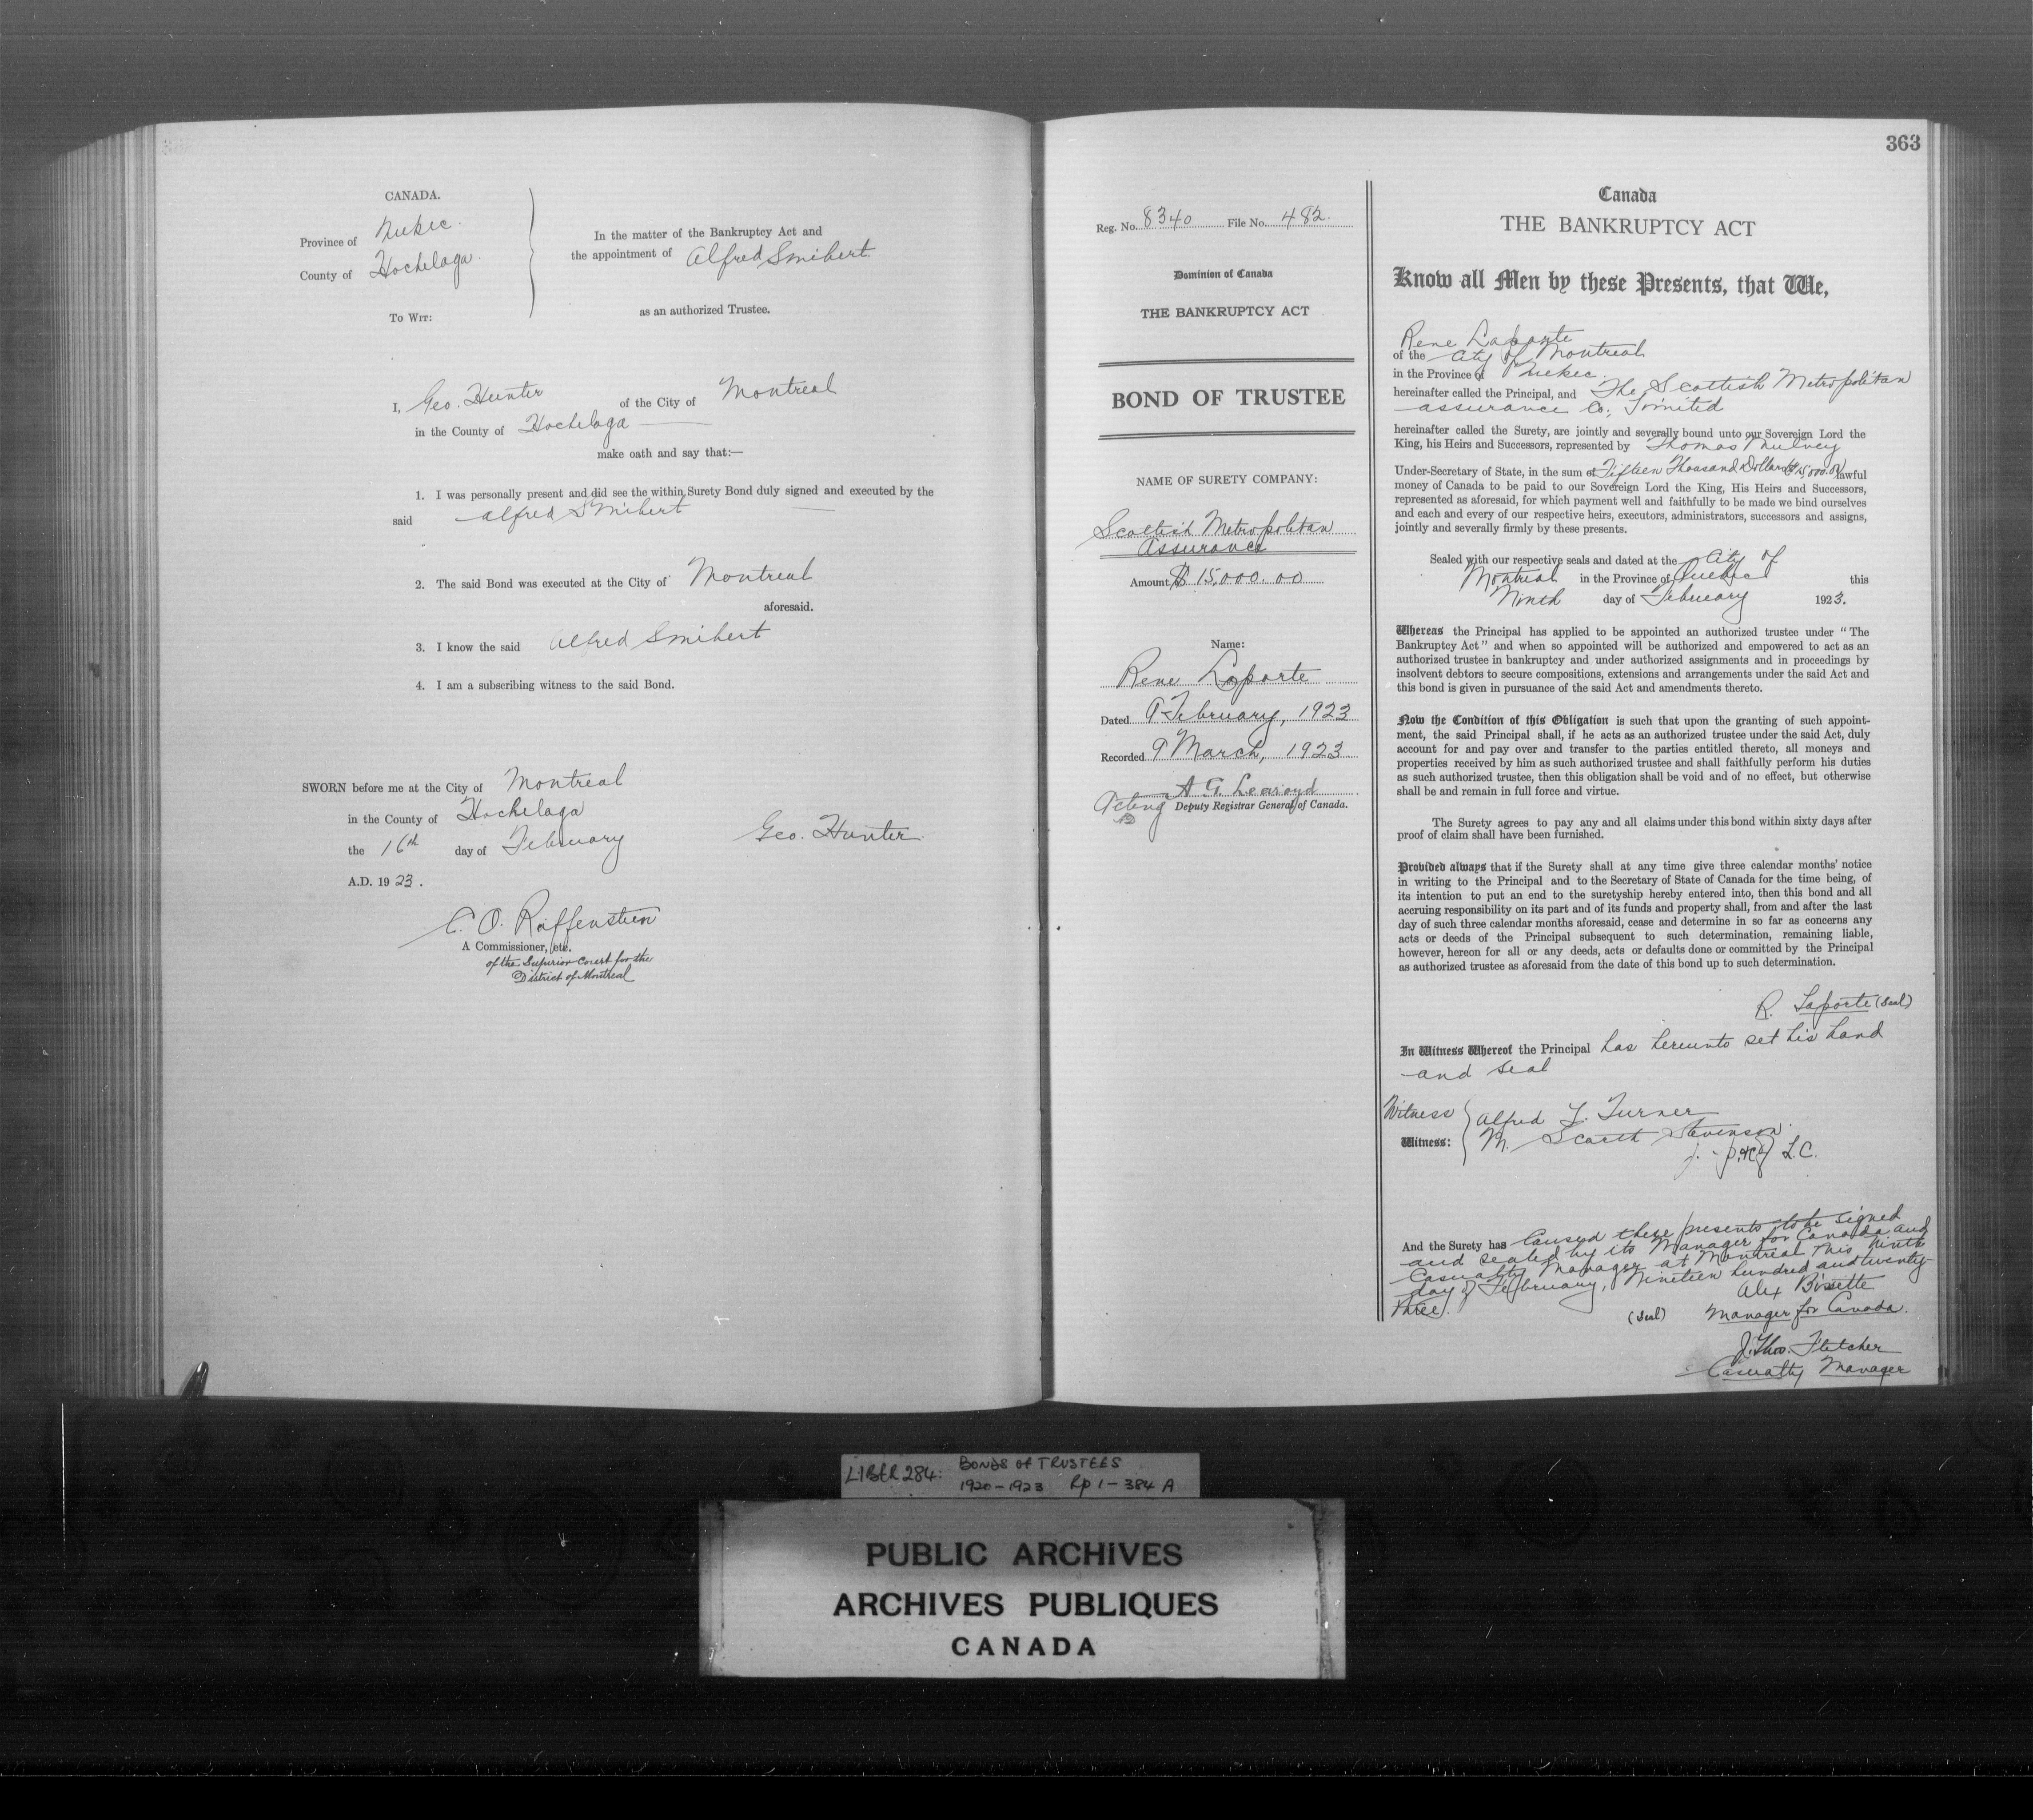 CANADA.
Province of Quebec.
County of Hochelaga.
To Wit:
In the matter of the Bankruptcy Act and
the appointment of Alfred Smibert
as an authorized Trustee.
I, Geo. Hunter of the City of Montreal
in the County of Hochelaga
make oath and say that:—
1. I was personally present and did see the within Surety Bond duly signed and executed by the
said Alfred Smibert
2. The said Bond was executed at the City of Montreal
aforesaid.
3. I know the said Alfred Smibert
4. I am a subscribing witness to the said Bond.
SWORN before me at the City of Montreal
in the County of Hochelaga
the 16th day of February
A.D. 1923.
Geo. Hunter.
C. O. Raffenstein
A Commissioner, etc.
of the Superior Court for the
District of Montreal
Reg. No. 8340 File No. 482.
Dominion of Canada
THE BANKRUPTCY ACT
BOND OF TRUSTEE
NAME OF SURETY COMPANY:
Scottish Metropolitan
Assurance
Amount $ 15,000.00
Name:
Rene Laporte
Dated 9 February, 1923
Recorded 9 March, 1923
A. G. Learoyd
Acting Deputy Registrar General of Canada.
363
Canada
THE BANKRUPTCY ACT
Know all Men by these Presents, that We,
Rene Laporte
of the City of Montreal
in the Province of Quebec.
hereinafter called the Principal, and The Scottish Metropolitan
assurance Co., Limited
hereinafter called the Surety, are jointly and severally bound unto our Sovereign Lord the
King, his Heirs and Successors, represented by Thomas Mulvey
Under-Secretary of State, in the sum of Fifteen Thousand Dollars ($15,000.00) lawful
money of Canada to be paid to our Sovereign Lord the King, His Heirs and Successors,
represented as aforesaid, for which payment well and faithfully to be made we bind ourselves
and each and every of our respective heirs, executors, administrators, successors and assigns,
jointly and severally firmly by these presents.
Sealed with our respective seals and dated at the City of
Montreal in the Province of Quebec this
Ninth day of February 1923.
Whereas the Principal has applied to be appointed an authorized trustee under "The
Bankruptcy Act" and when so appointed will be authorized and empowered to act as an
authorized trustee in bankruptcy and under authorized assignments and in proceedings by
insolvent debtors to secure compositions, extensions and arrangements under the said Act and
this bond is given in pursuance of the said Act and amendments thereto.
Now the Condition of this Obligation is such that upon the granting of such appoint-
ment, the said Principal shall, if he acts as an authorized trustee under the said Act, duly
account for and pay over and transfer to the parties entitled thereto, all moneys and
properties received by him as such authorized trustee and shall faithfully perform his duties
as such authorized trustee, then this obligation shall be void and of no effect, but otherwise
shall be and remain in full force and virtue.
The Surety agrees to pay any and all claims under this bond within sixty days after
proof of claim shall have been furnished.
Provided always that if the Surety shall at any time give three calendar months' notice
in writing to the Principal and to the Secretary of State of Canada for the time being, of
its intention to put an end to the suretyship hereby entered into, then this bond and all
accruing responsibility on its part and of its funds and property shall, from and after the last
day of such three calendar months aforesaid, cease and determine in so far as concerns any
acts or deeds of the Principal subsequent to such determination, remaining liable,
however, hereon for all or any deeds, acts or defaults done or committed by the Principal
as authorized trustee as aforesaid from the date of this bond up to such determination.
R. Laporte (Seal)
In Witness Whereof the Principal has hereunto set his hand
and seal
Witness Alfred Turner
Witness: M. Scarth Stevenson.
And the Surety has Caused these presents to be signed
and sealed by its Manager for Canada and
Casualty Manager at Montreal this ninth
day of February, Nineteen hundred and twenty-
three.
Alex Bissette
(Seal) Manager for Canada.
J. Thos. Fletcher
Casualty Manager
LIBER 284: BONDS OF TRUSTEES
1920-1923 Rp 1-384 A
PUBLIC ARCHIVES
ARCHIVES PUBLIQUES
CANADA